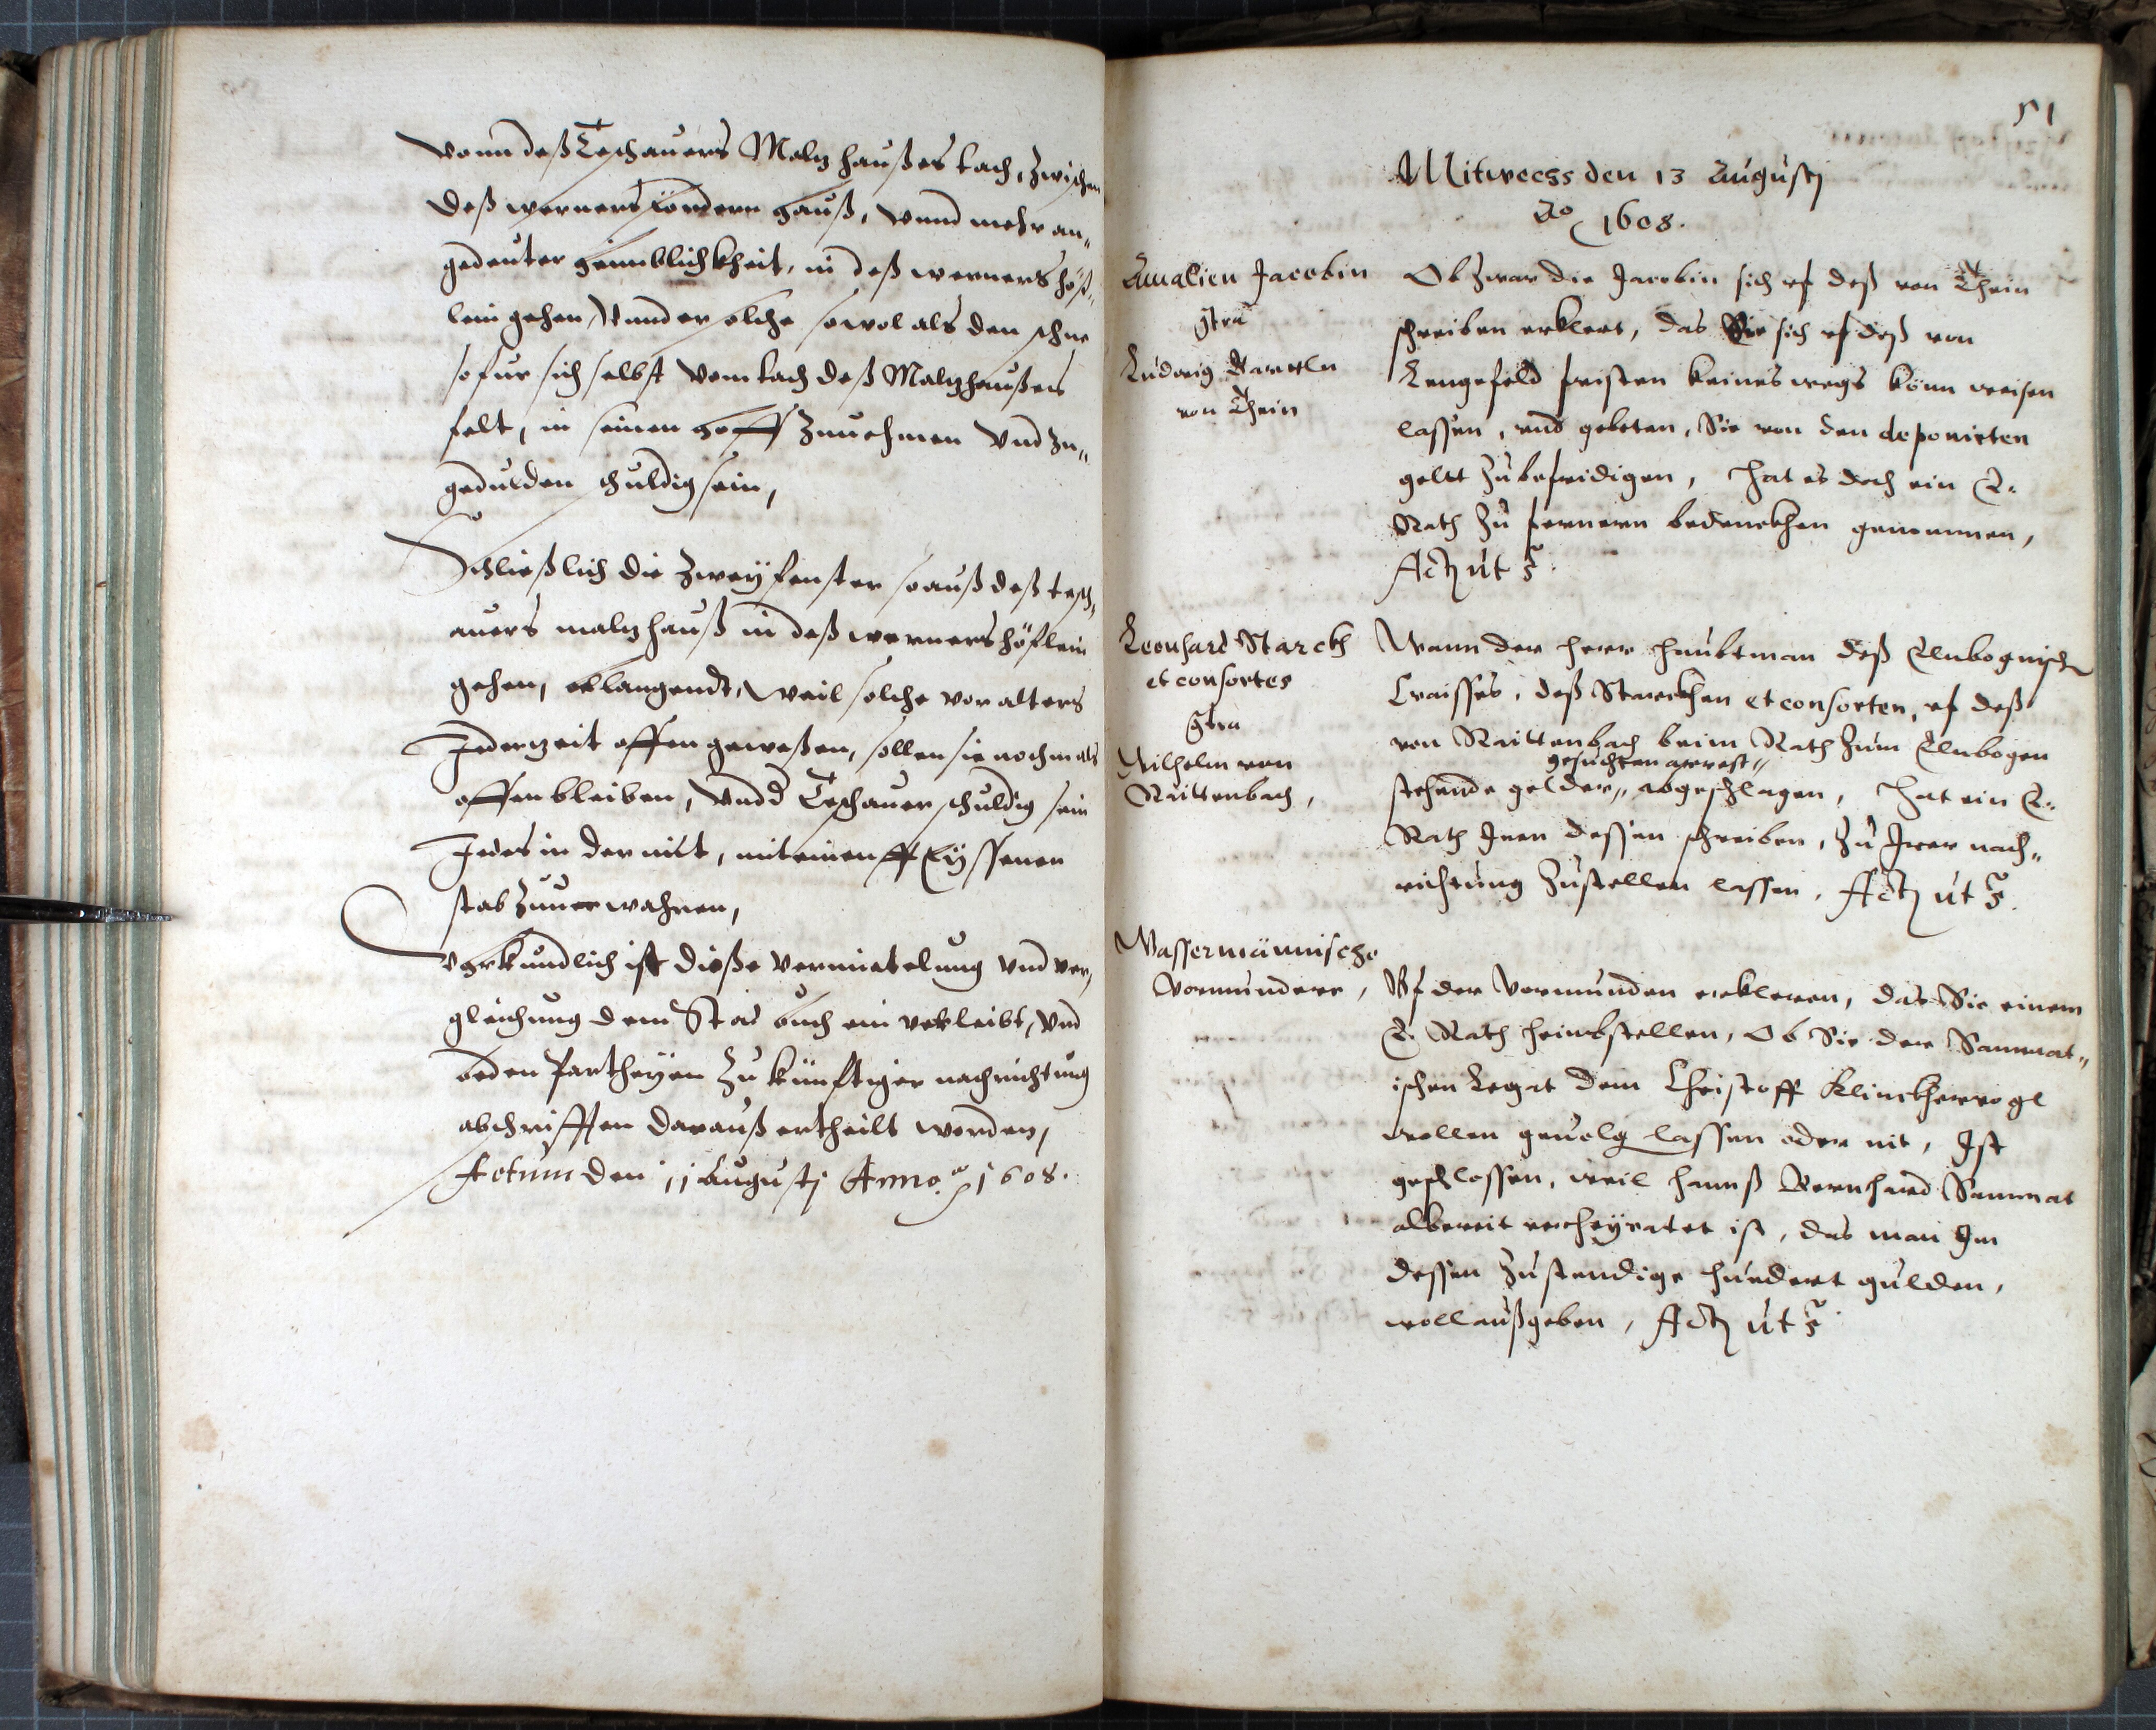 vonn deß Teschauers Maltzhaußes tach, zwischen
deß werners födern hauß, vnnd mehr an„
gedeuter heimblichkheit, in deß werners höf„
lein gehen, Vnnd er solche sowol als den schne
so fur sich selbst vom tach deß Maltzhaußes
felt, in seinen hoff zunehmen vnd zu„
gedulden schuldig sein,
Schließlich die zweÿ fenster so auß deß tesch„
auers maltzhauß in deß werners höflein
gehen, belangendt, weil solche vor alters
Jederzeit offen geweßen, sollen sie nochmals
offen bleiben, Vnnd Teschauer schuldig sein
Jedes in der mitt, mit einem Eÿssenen
stab zuuerwahren,
Vhrkundlich ist dieße vermittelung vnd ver„
gleichung dem Stad buch ein verleibt, vnd
beden Partheÿen zu künfftiger nachrichtung
abschrifften darauß ertheilt worden,
Actum den 11 Augustj Anno 1608.
51
Mitwochs den 13 Augustj
Ao 1608.
Amalien Jacobin
ctra
Ludwig
von Thein
Ob zwar die Jacobin sich vf deß von Thein
schreiben erklert, das Sie sich vf deß von
Lengefeld fristen keines wegs könn weisen
lassen, vnd gebeten, Sie von den deponirten
geltt zu befridigen, Hat es doch ein E.
Rath zu fernern bedenckhen genommen,
Actum ut s.
Leonhard Starckh
et consortes
ctra
Wilhelm von
Raittenbach,
Wann der herr haubtman deß Elnbognischen
Craisses, deß Starckhen et consorten, vf deß
von Raittenbach beim Rath zum Elnbogen
gesuchten arrest„
stehende gelder„ abgeschlagen, Hat ein E.
Rath Jnen dessen schreiben, zu Jrer nach„
richtung zustellen lassen, Actum ut s.
Wassermännische
Vormündere,
Vf der Vormunden erkleren, das Sie einem
E. Rath heimbstellen, Ob Sie den Sammat„
ischen Legat dem Christoff Klinckheruogl
wollen geuolg lassen oder nit, Jst
geschlossen, weil hannß Bernhard Sammat
albereit verheÿratet ist, das man Jm
dessen zustendige hundert gulden,
woll außgeben, Actum ut s.